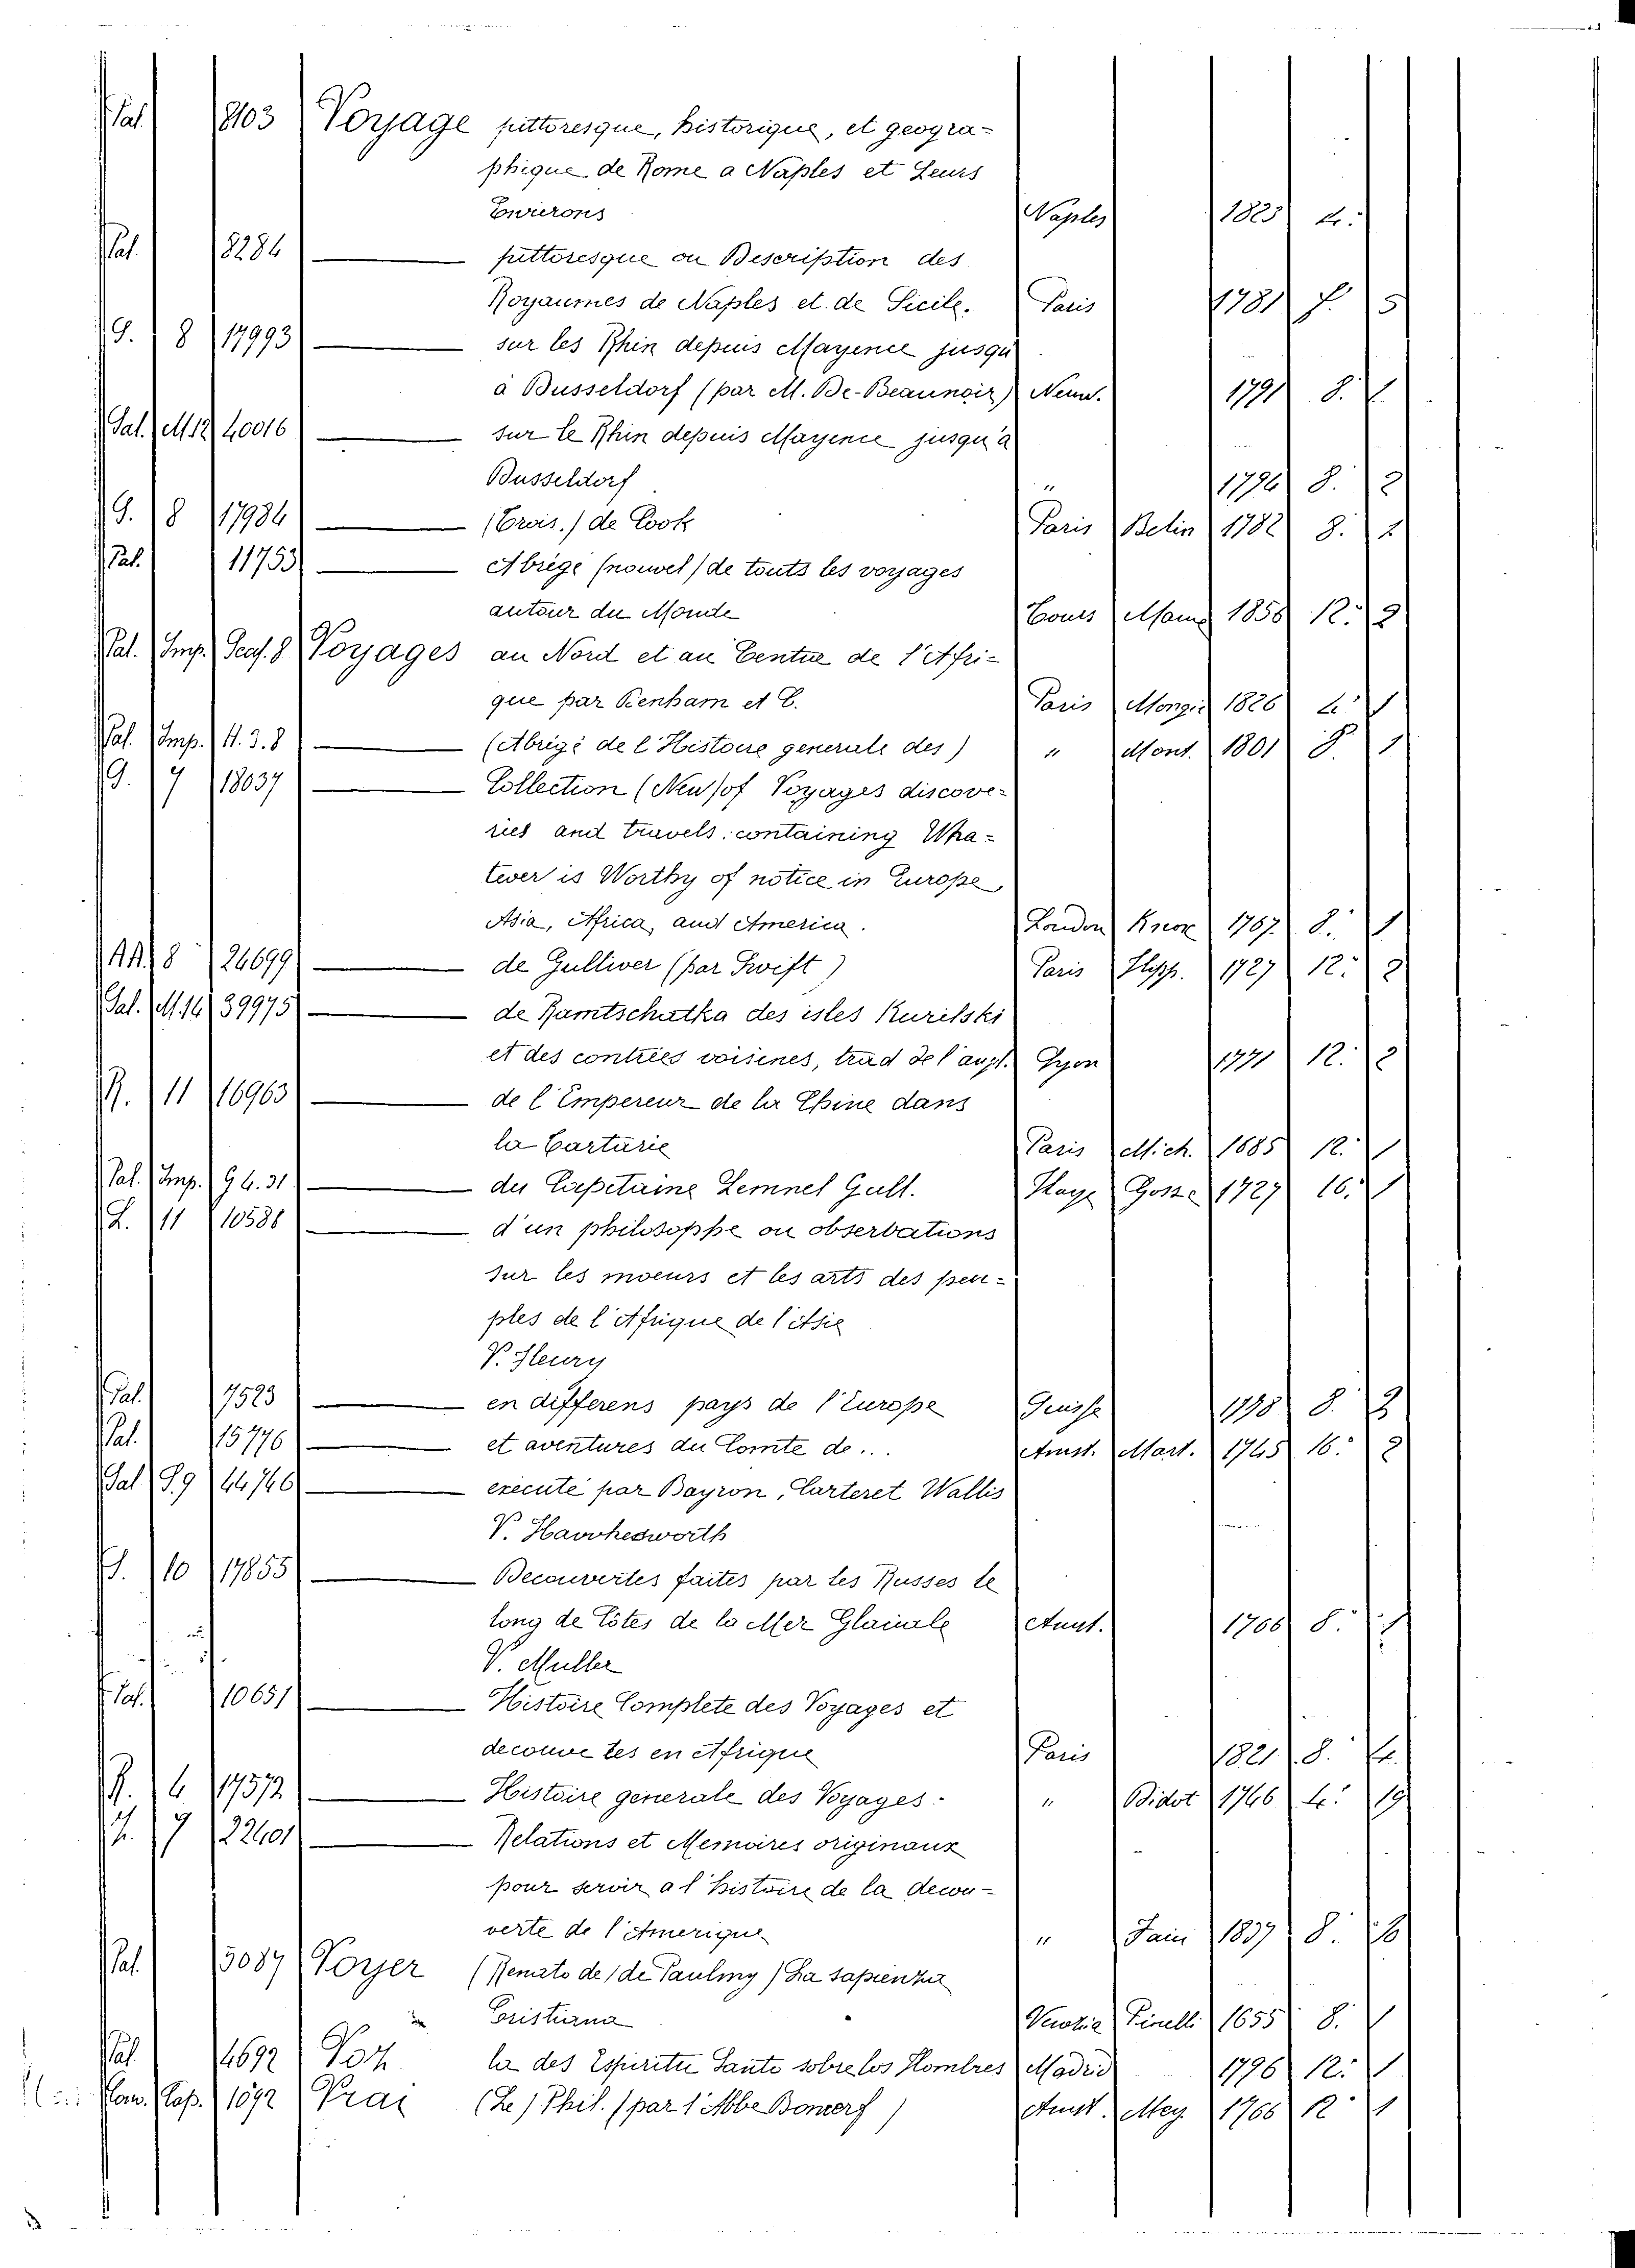 Pal. 8103 Voyage pittoresque, historique, et geogra-
phique de Rome a Naples et Leurs
Environs Naples 1823 4.
Pal. 8284 — pittoresque ou Description des
Royaumes de Naples et. de Sicile. Paris 1781 f. 5
G. 8 17993 — sur les Rhin depuis Mayence jusqu
à Dusseldorf (par M. De-Beaunoir) Neuw. 1791 8. 1
Sal. M 12 40016 — sur le Rhin depuis Mayence jusqu'a
Dusseldorf " 1794 8. 2
G. 8 17984 — (Trois.) de Cook Paris Belin 1782 8. 2
Pal. 11753 — Abrégé (nouvel) de touts les voyages
autour du Monde Tours Mame 1858 12. 2
Pal. Imp. Scaf. 8 Voyages au Nord et au Centre de l'Afri-
que par Denham et C. Paris Mongie 1826 4. 1
Pal. Imp. H. 3. 8 — (Abrégé de l Histoire generale des) " Mont. 1801 8. 1
G. 7 18037 — Collection (New) of Voyages discove-
ries and travels. containing Wha-
tever is Worthy of notice in Europe,
Asia, Africa, and America. London Knox 1767. 8. 1
AA. 8 24699 — de Gulliver (par Swift) Paris Hipp. 1727 12. 2
Sal. M. 14 39975 — de Kamtschatka des isles Kurilski
et des contrées voisines, trad de l'angl. Lyon 1771 12. 2
R. 11 16963 — de l'Empereur de la Chine dans
la Tartarie Paris Mich. 1685 12. 1
Pal. Imp. G 4. 31 — du Capitaine Lemnel Gull. Haye Gosse 1727 16. 1
L. 11 10588 — d'un philosophe ou observations
sur les moeurs et les arts des peu-
ples de l'Afrique de l'Asie
V. Fleury
Pal. 7523 — en differens pays de l'Europe 8. 2
Pal. 15776 — et aventures du Comte de... Amst. Mart. 1745 16. 2
Sal. S. 9 44746 — execute par Bayron, Carteret Wallis
V. Havvhesworth
10 17855 — Decouvertes faites par les Russes le
long de Côtes de la Mer Glaciale Amst. 1766 8. 1
V. Muller
Pal. 10651 — Histoire Complete des Voyages et
decouvetes en Afrique Paris 1821 8. 4.
R. 4 17572 — Histoire generale des Voyages. " Didot 1746 4. 19
7 22401 — Relations et Memoires originaux
pour servir a l histoire de la decou-
verte de l'Amerique " Fain 1837 8.
Pal. 5087 Voyer (Renato de) de Paulmy) La sapienza
Cristiana Venezia Pinelli 1655 8. 1
Pal. 4692 Voz la des Espiritu Santo sobre los Hombres Madrid 1796 12. 1
Cap. 1092 Vrai (Le) Phil. (par l'Abbe) Amst. Mey. 1766 12 1